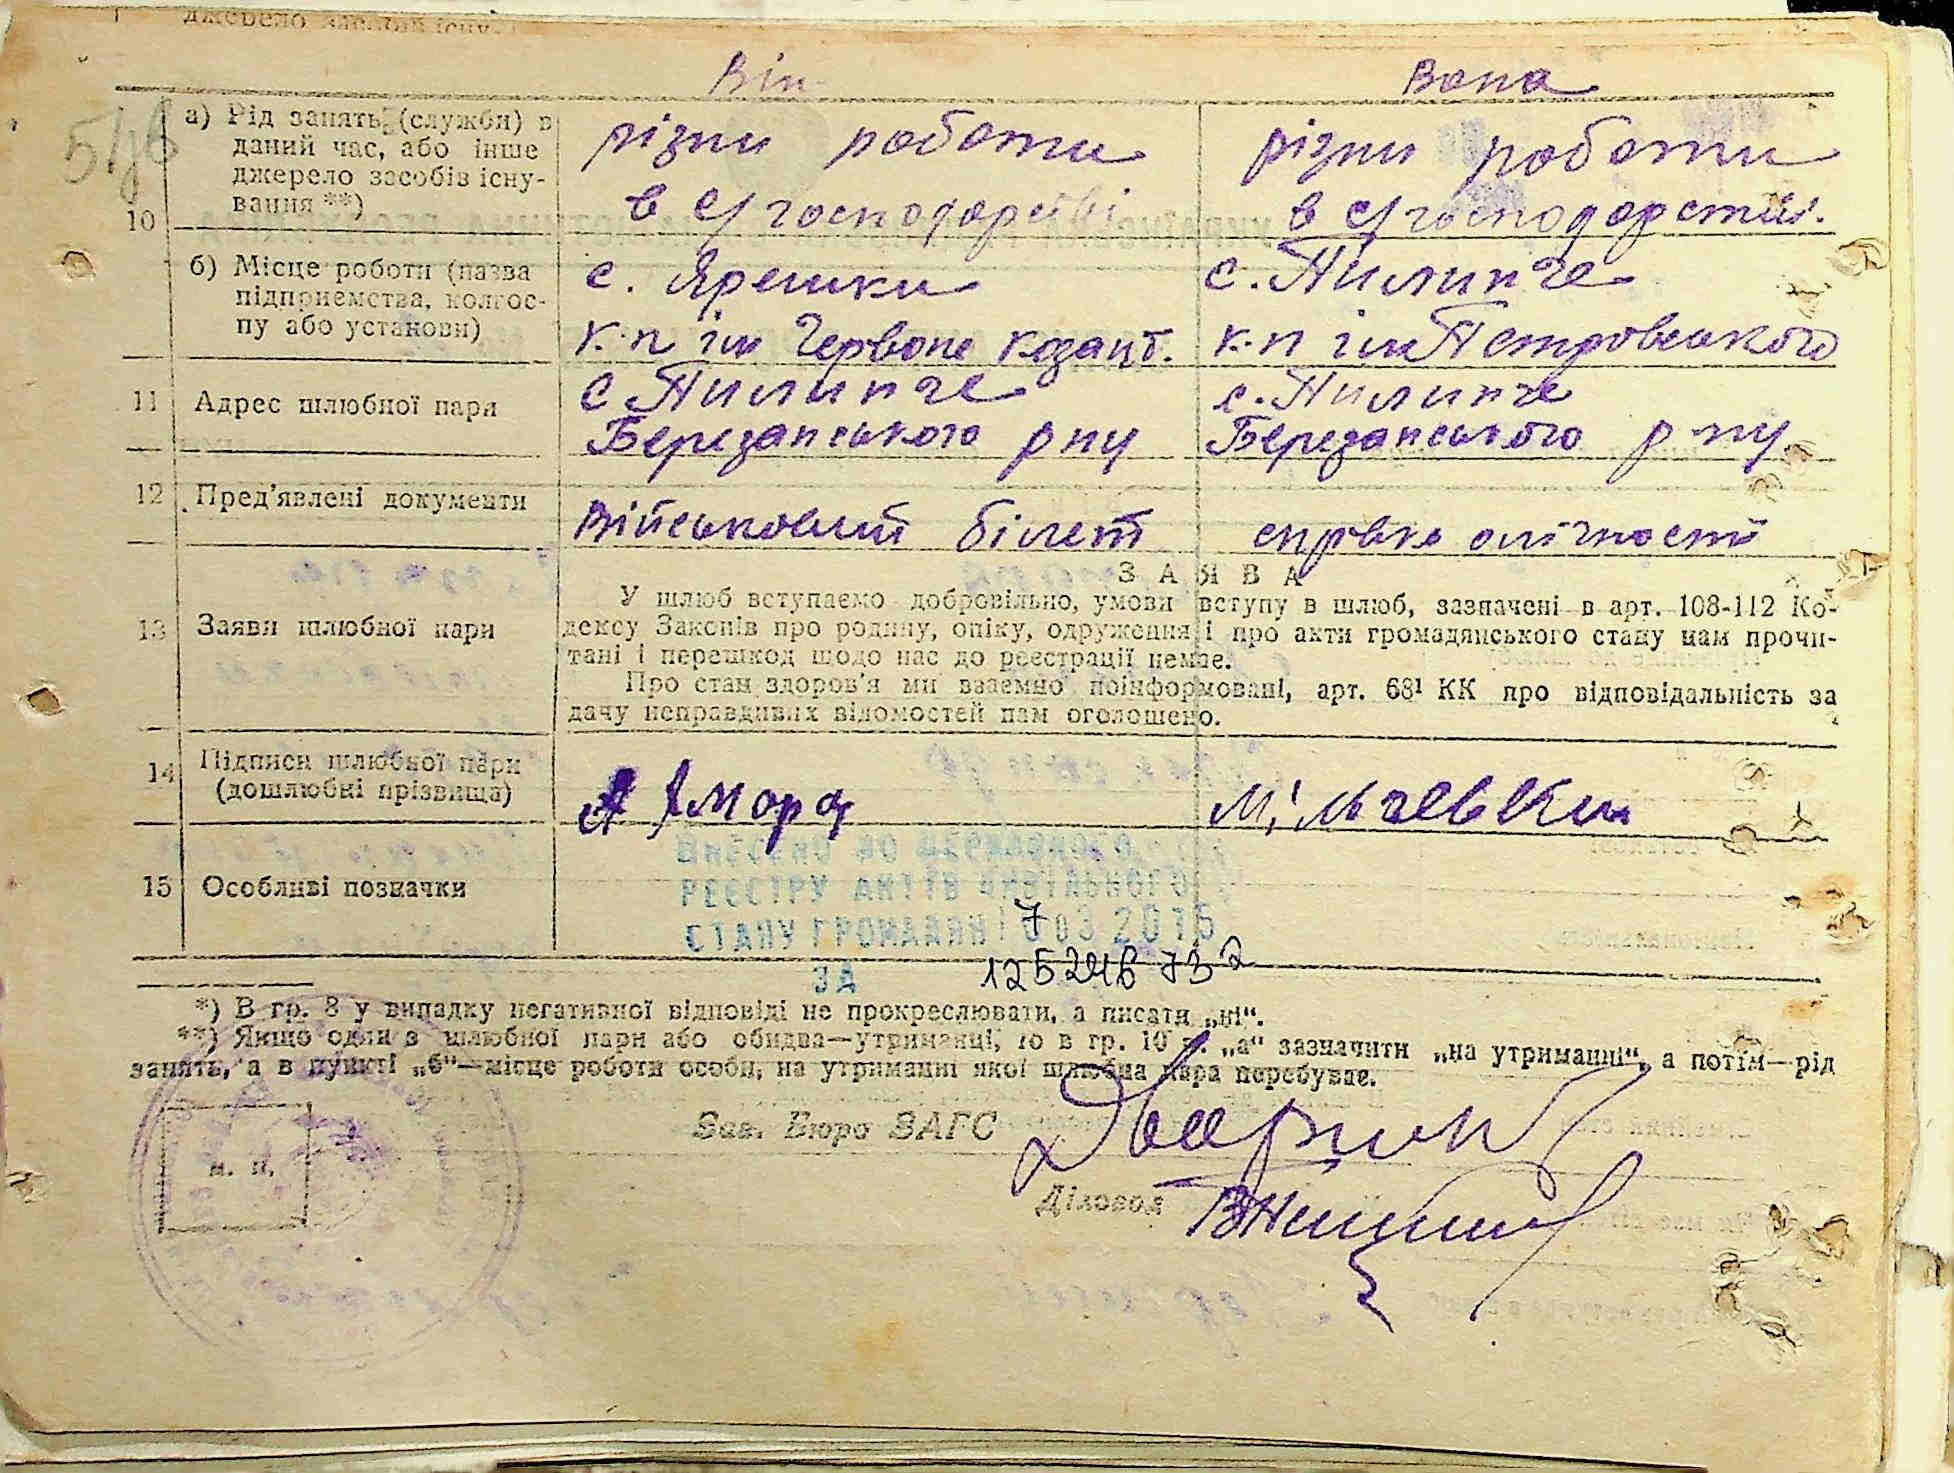 джерело засобів існу-
Він Вона
10 а) Рід занять (служби) в
даний час, або інше
джерело засобів існу-
вання **)
різни роботи
в с/господарстві
різни роботи
в с/господарстві.
б) Місце роботи (назва
підприємства, колгос-
пу або установи)
с. Ярешки
к-п ім Червоне козацт.
с. Пилипче
к-п ім Петровського
11 Адрес шлюбної пари
с Пилипче
Березанського р ну
с. Пилипче
Березанського р-ну
12 Пред’явлені документи
Військовий білет
справка олічности
З А Я В А
13 Заяви шлюбної пари
У шлюб вступаємо добровільно, умови вступу в шлюб, зазначені в арт. 108-112 Ко-
дексу Законів про родину, опіку, одруження і про акти громадянського стану нам прочи-
тані і перешкод щодо нас до реєстрації немає.
Про стан здоров’я ми взаємно поінформовані, арт. 68¹ КК про відповідальність за
дачу неправдивих відомостей нам оголошено.
14 Підписи шлюбної пари
(дошлюбні прізвища)
Мільчевски
15 Особливі позначки
ВНЕСЕНО ДО ДЕРЖАВНОГО
РЕЄСТРУ АКТІВ ЦИВІЛЬНОГО
СТАНУ ГРОМАДЯН 03 2015
ЗА
*) В гр. 8 у випадку негативної відповіді не прокреслювати, а писати „ні“.
**) Якщо один з шлюбної пари або обидва—утриманці, то в гр. 10 п. „а“ зазначити „на утриманні“, а потім—рід
занять, а в пункті „б“—місце роботи особи, на утриманні якої шлюбна пара перебуває.
Зав. Бюро ЗАГС
м. п.
Діловод